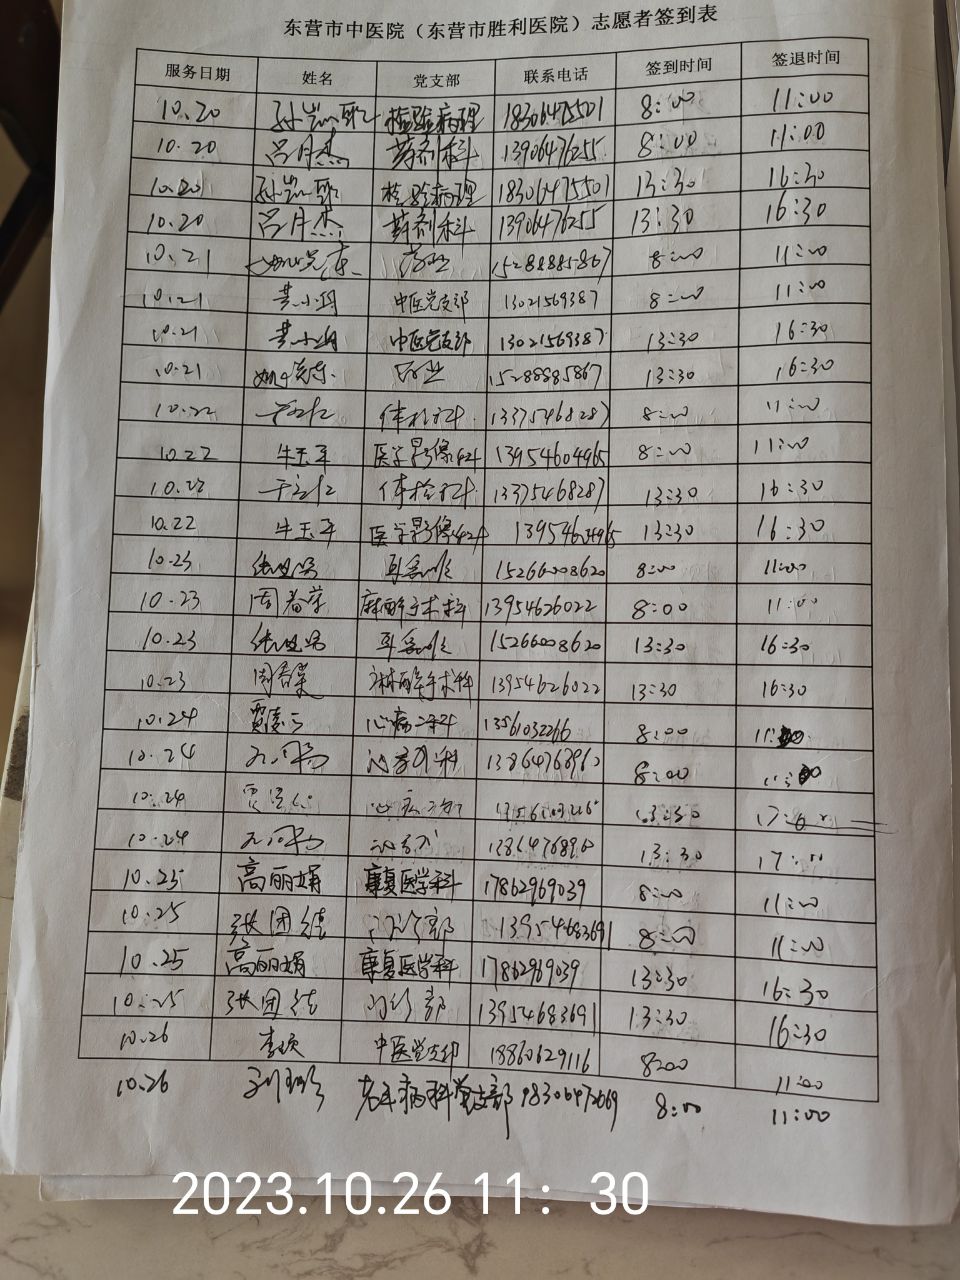 东营市中医院（东营市胜利医院）志愿者签到表
服务日期 姓名 党支部 联系电话 签到时间 签退时间
10.20 孙凯歌 检验病理 18306475501 8:00 11:00
10.20 吕月杰 药剂科 13906476255 8:00 11:00
10.20 孙凯歌 检验病理 18306475501 13:30 16:30
10.20 吕月杰 药剂科 13906476255 13:30 16:30
10.21 15288885867 8:00 11:00
10.21 黄小娟 中医党支部 13021569387 8:00 11:00
10.21 黄小娟 中医党支部 13021569387 13:30 16:30
10.21 15288885867 13:30 16:30
10.22 体检科 13375468287 8:00 11:00
10.22 牛玉平 医学影像科 13954604965 8:00 11:00
10.22 体检科 13375468287 13:30 16:30
10.22 牛玉平 医学影像科 13954604965 13:30 16:30
10.23 15266008620 8:00 11:00
10.23 周春荣 麻醉手术科 13954626022 8:00 11:00
10.23 15266008620 13:30 16:30
10.23 周春荣 麻醉手术科 13954626022 13:30 16:30
10.24 心病二科 13561032266 8:00 11:30
10.24 泌尿外科 13864768960 8:00 11:30
10.24 13:30
10.24 13:30 17:00
10.25 高丽娟 康复医学科 17862969039 8:00 11:00
10.25 张团结 门诊部 13954683691 8:00 11:00
10.25 高丽娟 康复医学科 17862969039 13:30 16:30
10.25 张团结 门诊部 13954683691 13:30 16:30
10.26 中医党支部 18860629116 8:00 11:00
10.26 老年病科党支部 18306472669 8:00 11:00
2023.10.26 11：30